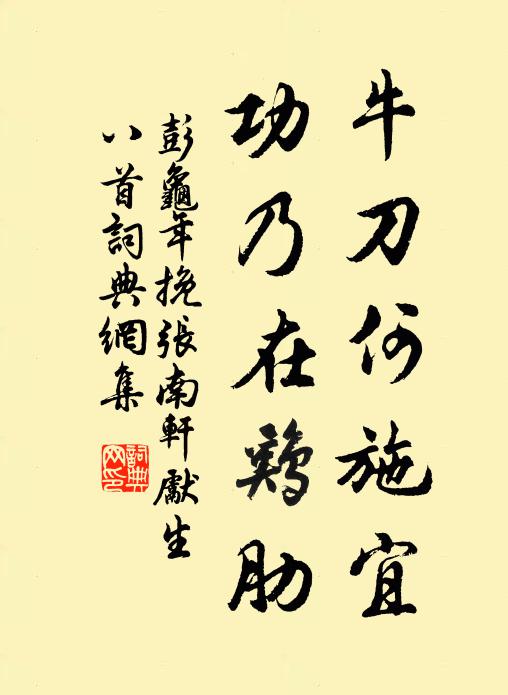 牛刀何施宜
功乃在鷄肋
彭龜年挽張南軒獻生
八首詞典網集
詞典网印